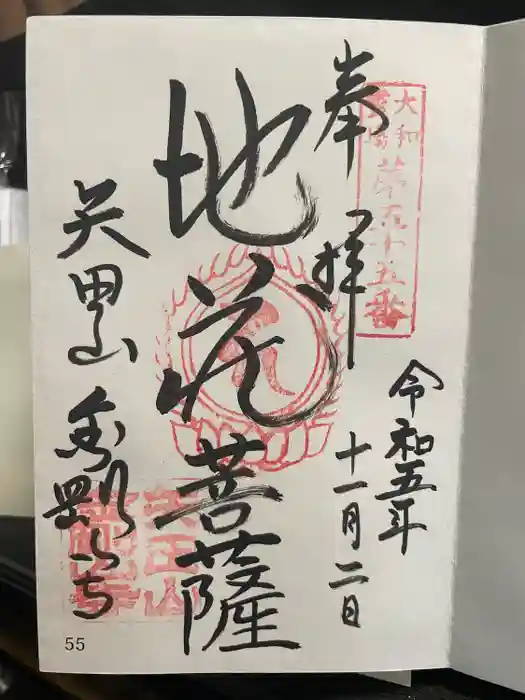 大和
霊場
第五十五番
奉拝
令和五年
十一月二日
地蔵菩薩
矢田山
55